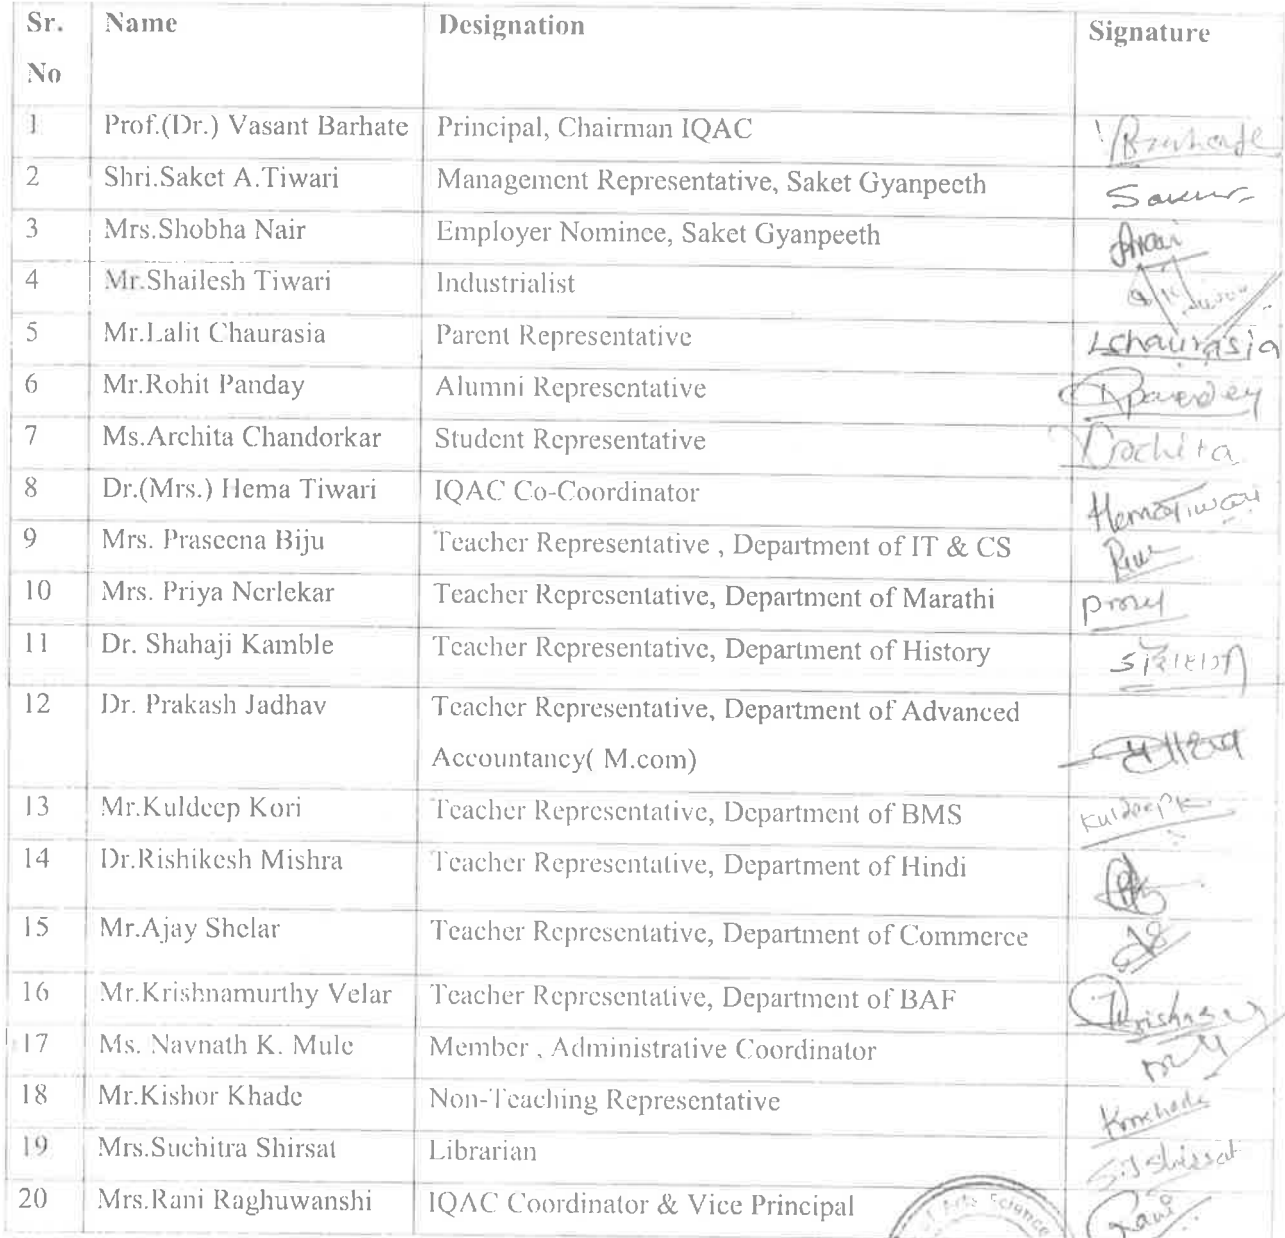 Sr. No Name Designation Signature
1 Prof.(Dr.) Vasant Barhate Principal, Chairman IQAC Barhate
2 Shri.Saket A.Tiwari Management Representative, Saket Gyanpeeth
3 Mrs.Shobha Nair Employer Nominee, Saket Gyanpeeth
4 Mr.Shailesh Tiwari Industrialist
5 Mr.Lalit Chaurasia Parent Representative Lchaurasia
6 Mr.Rohit Panday Alumni Representative Rpandey
7 Ms.Archita Chandorkar Student Representative
8 Dr.(Mrs.) Hema Tiwari IQAC Co-Coordinator HemaTiwari
9 Mrs. Praseena Biju Teacher Representative , Department of IT & CS
10 Mrs. Priya Nerlekar Teacher Representative, Department of Marathi
11 Dr. Shahaji Kamble Teacher Representative, Department of History
12 Dr. Prakash Jadhav Teacher Representative, Department of Advanced
Accountancy( M.com)
13 Mr.Kuldeep Kori Teacher Representative, Department of BMS KuldeepK
14 Dr.Rishikesh Mishra Teacher Representative, Department of Hindi
15 Mr.Ajay Shelar Teacher Representative, Department of Commerce
16 Mr.Krishnamurthy Velar Teacher Representative, Department of BAF
17 Ms. Navnath K. Mule Member , Administrative Coordinator
18 Mr.Kishor Khade Non-Teaching Representative
19 Mrs.Suchitra Shirsat Librarian
20 Mrs.Rani Raghuwanshi IQAC Coordinator & Vice Principal Rani
of Arts Science